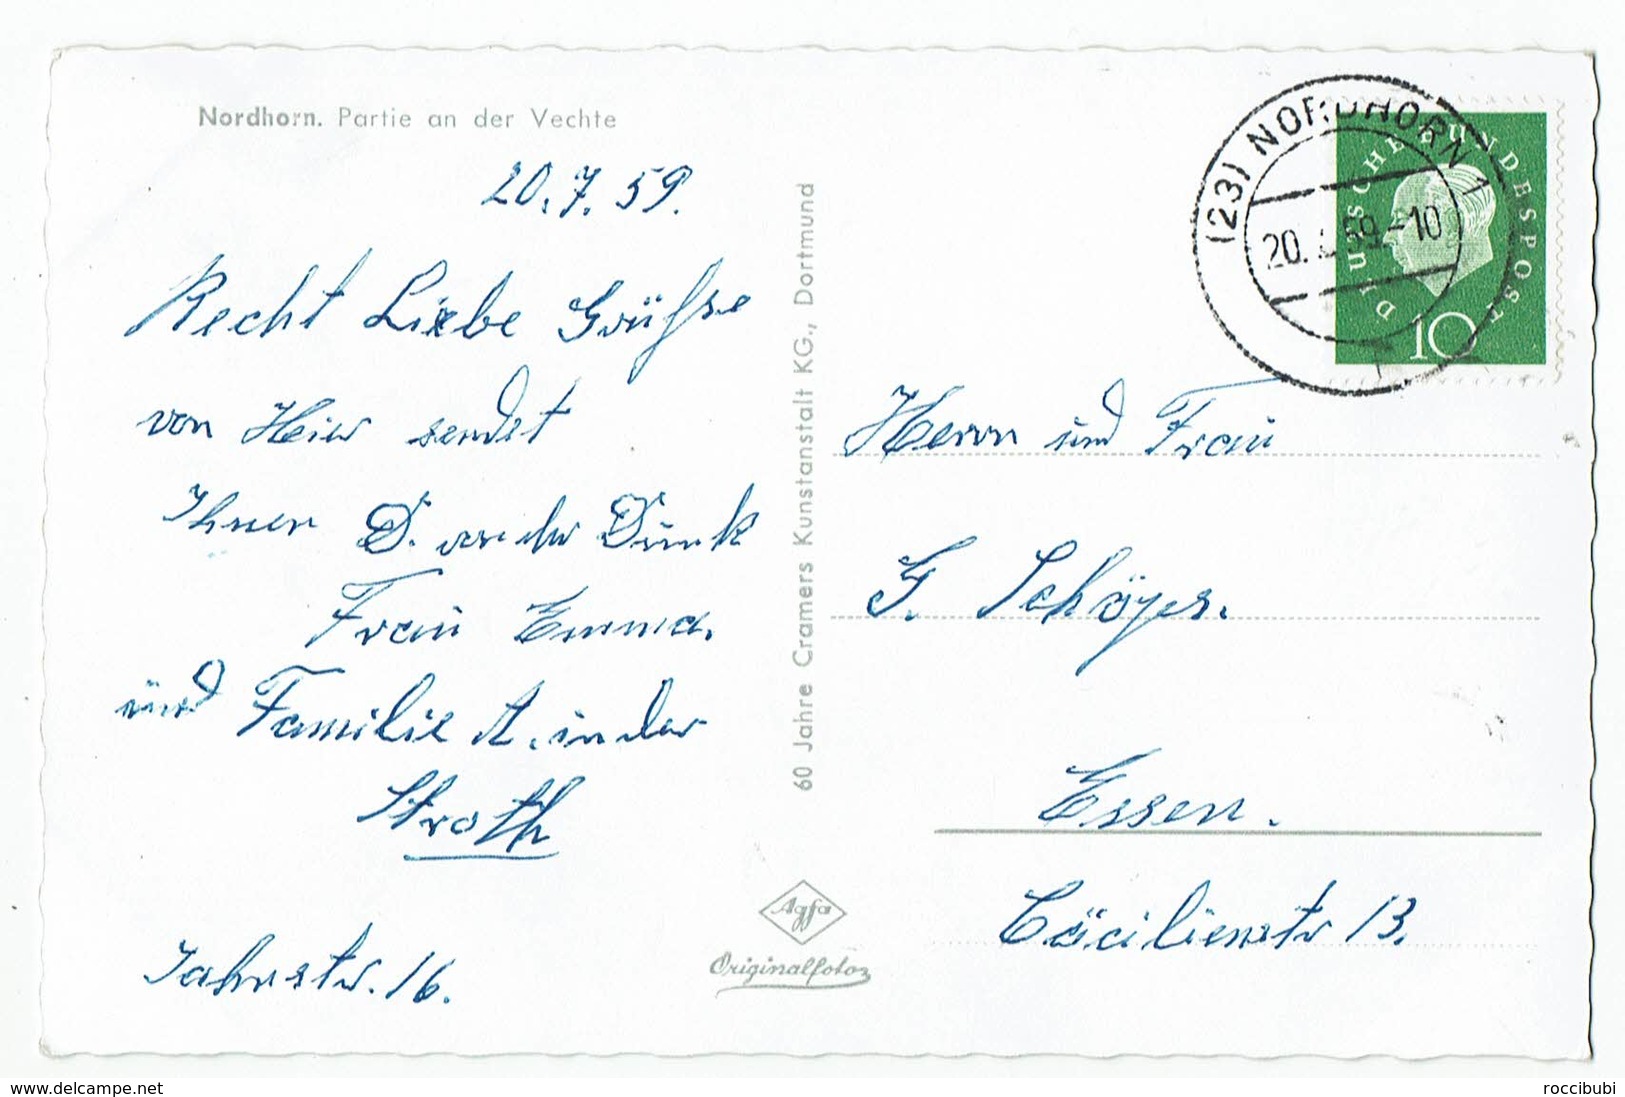 Nordhorn. Partie an der Vechte
20.7.59.
Recht Liebe Grüsse
von Hier sendet
Ihnen D. von der Dünk
Frau Emma.
und Familie A. in der
Stroth
Jahnstr. 16.
60 Jahre Cramers Kunstanstalt KG., Dortmund
Agfa
Originalfoto
(23) NORDHORN 1
20. 59.-10
DEUTSCHE BUNDESPOST
10
Herrn und Frau
G. Schöps.
Essen.
Cäcilienstr 13.
www.delcampe.net
roccibubi